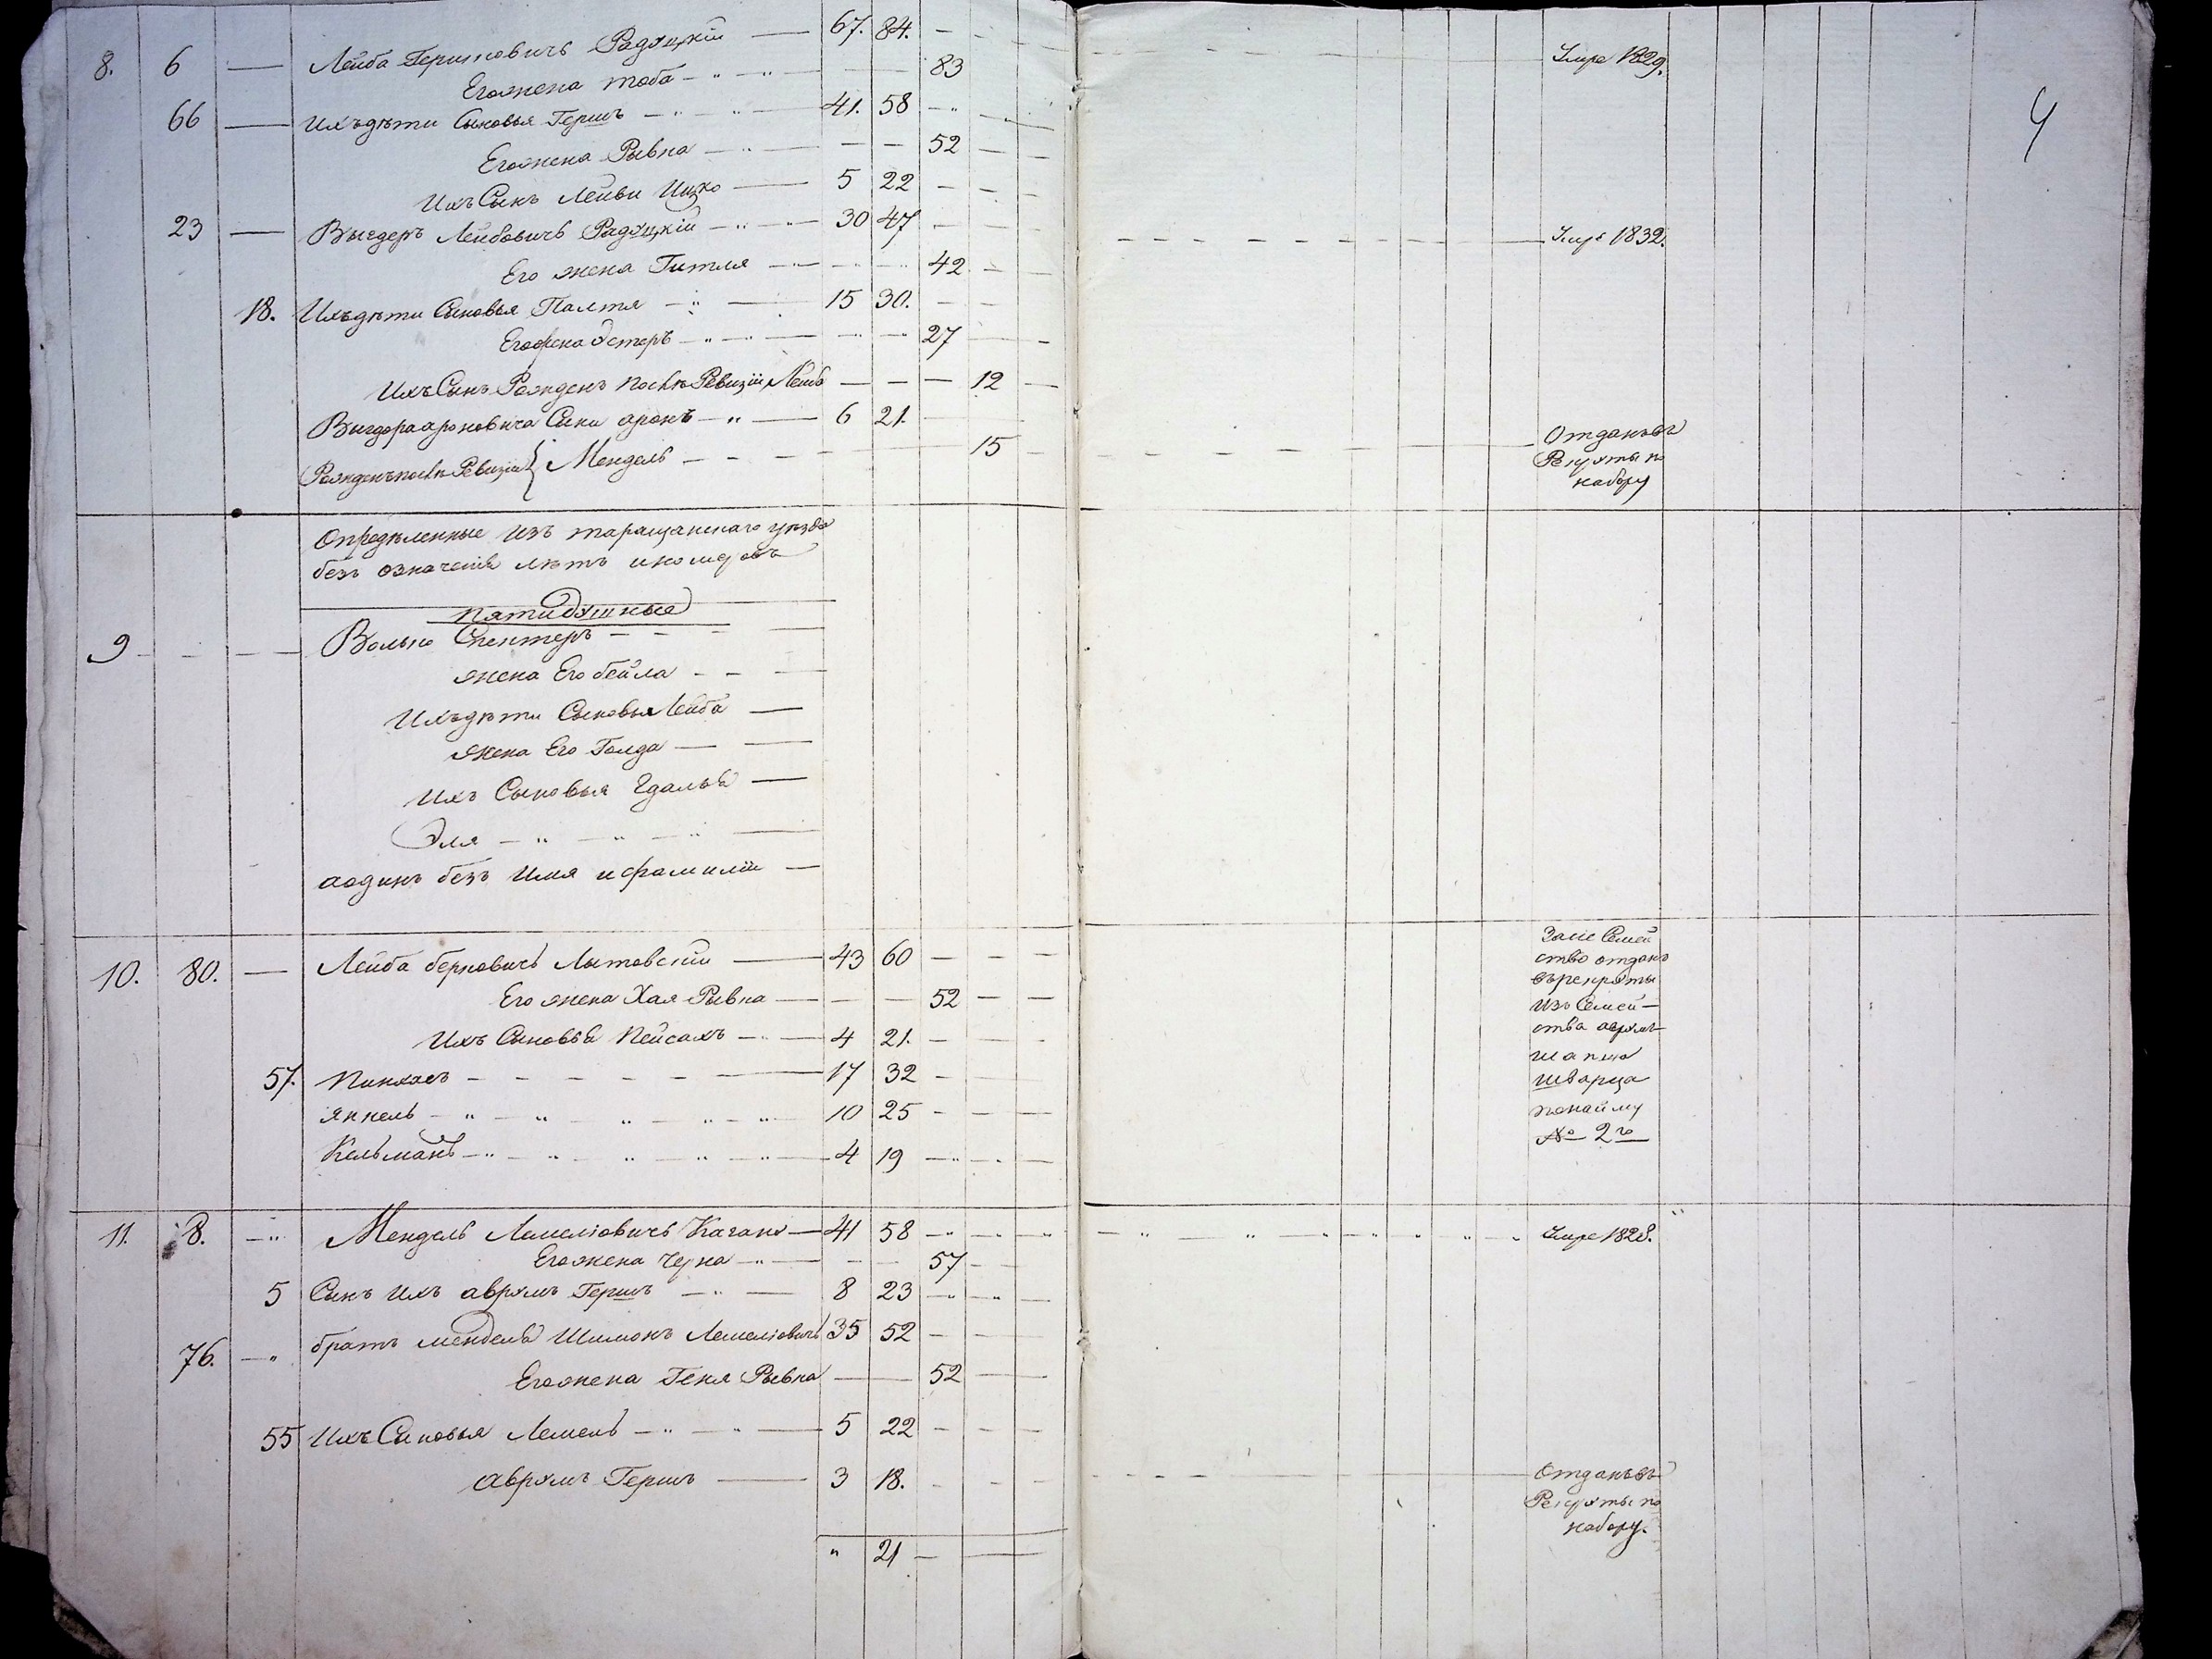 4
8. 6 — Лейба Гершковичъ Радуцкій — 67. 84. — Умре 1829.
Его жена тоба — 83
66 — Ихъ дѣти Сыновья Гершъ — 41. 58 —
Его жена Рывка — 52
Ихъ Сынъ Лейви Ицко — 5 22 —
23 — Выгдеръ Лейбовичъ Радуцкій — 30 47 — Умре 1832.
Его жена Гитля — 42 —
18. Ихъ дѣти Сыновья Палтя — 15 30. —
Его жена Эстеръ — 27
Ихъ Сынъ Рожденъ послѣ Ревизіи Лейб — 12 —
Выгдора ароновича Сыни аронъ — 6 21.
Рожденъ послѣ Ревизіи { Мендель — 15 — Отданъ въ
Рекруты по
набору
Опредѣленные изъ таращанскаго уезда
безъ означенія лѣтъ и номеровъ
пятидушные
9 — Волько Спекторъ —
жена Его бейла —
Ихъ дѣти Сыновья Лейба —
жена Его Голда —
Ихъ Сыновья Гдалья —
Эля —
а одинъ безъ Имя и фамиліи —
10. 80. — Лейба берковичъ Лытовскій — 43 60 —
Его жена Хая Рывка — 52 —
Ихъ Сыновья Пейсахъ — 4 21. —
57. Пинхасъ — 17 32 —
янкель — 10 25 —
Кельманъ — 4 19 —
Заме Семей
ство отданъ
въ рекруты
Изъ Семей—
ства аврумъ
шапша
шварца
по найму
№ 2го
11. 8. — Мендель Лемелiовичъ Каганъ — 41 58 — Умре 1828.
Его жена Черна — 57 —
5 Сынъ Ихъ аврумъ Гершъ — 8 23 —
76. — братъ менделя Шимонъ Лемелiовичъ 35 52 —
Его жена Геня Рывка — 52 —
55 Ихъ Сыновья Лемель — 5 22 —
аврумъ Гершъ — 3 18. — Отданъ въ
Рекруты по
набору.
" 21 —